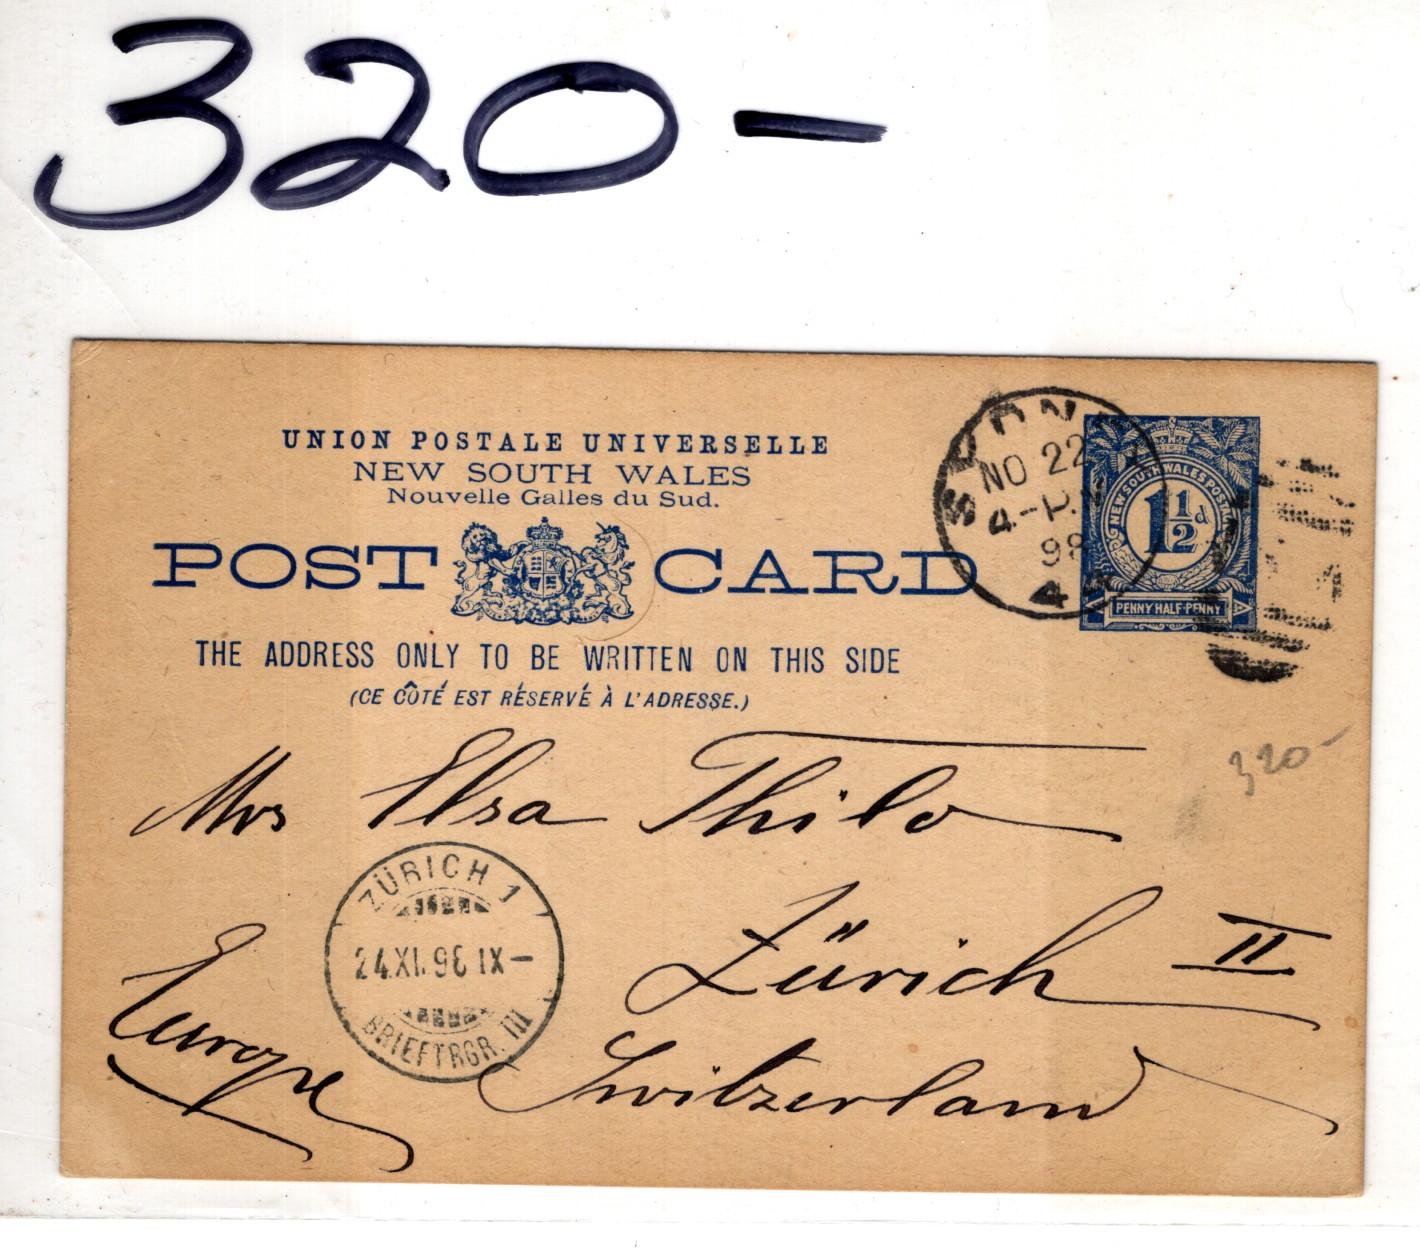 320-
UNION POSTALE UNIVERSELLE
NEW SOUTH WALES
Nouvelle Galles du Sud.
POST CARD
THE ADDRESS ONLY TO BE WRITTEN ON THIS SIDE
(CE CÔTÉ EST RÉSERVÉ À L'ADRESSE.)
SYDNEY
NO 22
4-P.M
98
44
NEW SOUTH WALES POSTAGE
1½d
PENNY HALF-PENNY
320-
Mrs Elsa Thilo
Zürich II
Switzerland
Europe
ZÜRICH 1
24.XI.98 IX-
BRIEFTRGR. III